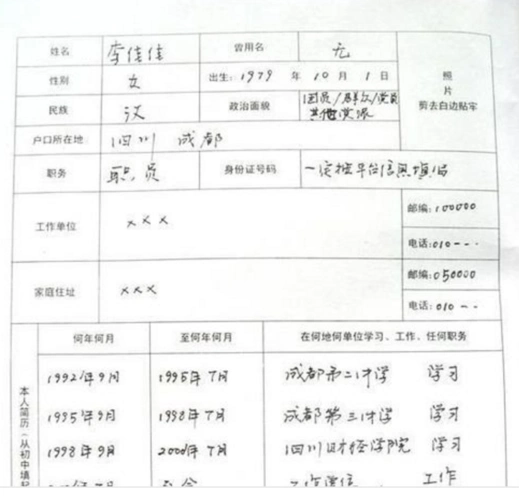 姓名 李佳佳 曾用名 无
性别 女 出生: 1979 年 10 月 1 日
照
片
剪去白边贴牢
民族 汉 政治面貌 团员/群众/党员
其他党派
户口所在地 四川 成都
职务 职员 身份证号码 一定按身份证照填写
工作单位 xxx 邮编: 100000
电话: 010---
家庭住址 xxx 邮编: 050000
电话: 010--
本人简历(从初中填起
何年何月 至何年何月 在何地何单位学习、工作、任何职务
1992年9月 1995年7月 成都第二中学 学习
1995年9月 1998年7月 成都第三中学 学习
1998年9月 2001年7月 四川财经学院 学习
工作